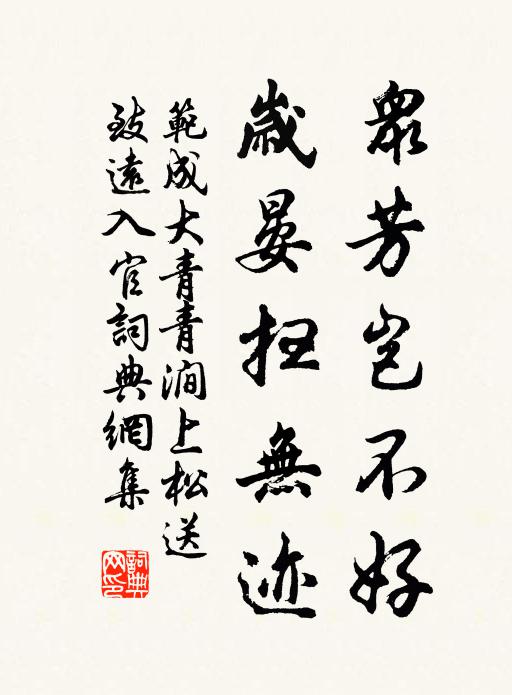 眾芳豈不好
歲晏掃無迹
範成大青青澗上松送
致遠入官詞典網集
詞典
網印